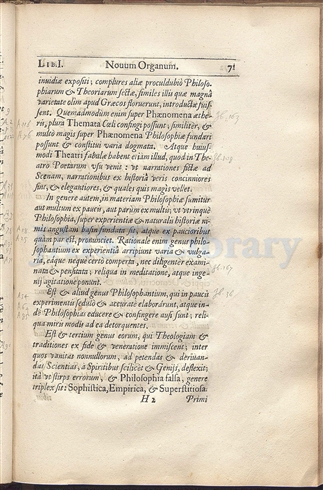 LIB. I. Novum Organum. 71
inuidiæ expositi; complures aliæ proculdubiò Philoso-
phiarum & Theoriarum sectæ, similes illis quæ magnâ
varietate olim apud Græcos floruerunt, introductæ fuis-
sent. Quemadmodum enim super Phænomena æthe-
ris, plura Themata Cœli confingi possunt; similiter, &
multò magis super Phænomena Philosophiæ fundari
possunt & constitui varia dogmata. Atque huius-
modi Theatri fabulæ habent etiam illud, quod in The-
atro Poetarum vsu venit; vt narrationes fictæ ad
Scenam, narrationibus ex historiâ veris concinniores
sint, & elegantiores, & quales quis magis vellet.
In genere autem, in materiam Philosophiæ sumitur
aut multum ex paucis, aut parùm ex multis; vt vtrinque
Philosophia, super experientiæ & naturalis historiæ ni-
mis angustam basin fundata sit, atque ex paucioribus
quàm par est, pronunciet. Rationale enim genus philo-
sophantium ex experientiâ arripiunt varia & vulga-
ria, eaque neque certò comperta, nec diligentèr exami-
nata & pensitata; reliqua in meditatione, atque inge-
nij agitatione ponunt.
Est & aliud genus Philosophantium, qui in paucis
experimentis sedulò & accuratè elaborârunt, atque in-
dè Philosophias educere & confingere ausi sunt; reli-
qua miris modis ad ea detorquentes.
Est & tertium genus eorum, qui Theologiam &
traditiones ex fide & veneratione immiscent; inter
quos vanitas nonnullorum, ad petendas & deriuan-
das Scientias, à Spiritibus scilicet & Genijs, deflexit;
ità vt stirps errorum, & Philosophia falsa, genere
triplex sit: Sophistica, Empirica, & Superstitiosa.
H 2 Primi